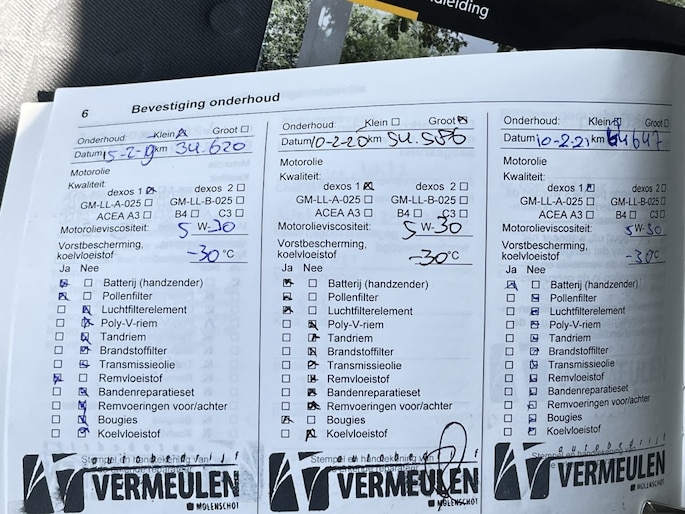 leiding
6 Bevestiging onderhoud
Onderhoud: Klein ☒ Groot ☐
Datum 15-2-19 km 34.620
Motorolie
Kwaliteit:
dexos 1 ☒ dexos 2 ☐
GM-LL-A-025 ☐ GM-LL-B-025 ☐
ACEA A3 ☐ B4 ☐ C3 ☐
Motorolieviscositeit: 5 W-30
Vorstbescherming,
koelvloeistof -30 °C
Ja Nee
☒ ☐ Batterij (handzender)
☒ ☐ Pollenfilter
☐ ☒ Luchtfilterelement
☐ ☒ Poly-V-riem
☐ ☒ Tandriem
☐ ☒ Brandstoffilter
☐ ☒ Transmissieolie
☒ ☐ Remvloeistof
☐ ☒ Bandenreparatieset
☐ ☒ Remvoeringen voor/achter
☐ ☒ Bougies
☐ ☒ Koelvloeistof
Stempel en handtekening van
autobedrijf
VERMEULEN
MOLENSCHOT
Onderhoud: Klein ☐ Groot ☒
Datum 10-2-20 km 54.586
Motorolie
Kwaliteit:
dexos 1 ☒ dexos 2 ☐
GM-LL-A-025 ☐ GM-LL-B-025 ☐
ACEA A3 ☐ B4 ☐ C3 ☐
Motorolieviscositeit: 5 W-30
Vorstbescherming,
koelvloeistof -30 °C
Ja Nee
☒ ☐ Batterij (handzender)
☒ ☐ Pollenfilter
☒ ☐ Luchtfilterelement
☐ ☒ Poly-V-riem
☐ ☒ Tandriem
☐ ☒ Brandstoffilter
☐ ☒ Transmissieolie
☐ ☒ Remvloeistof
☐ ☒ Bandenreparatieset
☐ ☒ Remvoeringen voor/achter
☒ ☐ Bougies
☐ ☒ Koelvloeistof
Stempel en handtekening van
VERMEULEN
MOLENSCHOT
Onderhoud: Klein ☒ Groot ☐
Datum 10-2-21 km 64647
Motorolie
Kwaliteit:
dexos 1 ☒ dexos 2 ☐
GM-LL-A-025 ☐ GM-LL-B-025 ☐
ACEA A3 ☐ B4 ☐ C3 ☐
Motorolieviscositeit: 5 W-30
Vorstbescherming,
koelvloeistof -30 °C
Ja Nee
☒ ☐ Batterij (handzender)
☐ ☒ Pollenfilter
☐ ☒ Luchtfilterelement
☐ ☒ Poly-V-riem
☐ ☒ Tandriem
☐ ☒ Brandstoffilter
☐ ☒ Transmissieolie
☐ ☒ Remvloeistof
☐ ☒ Bandenreparatieset
☐ ☒ Remvoeringen voor/achter
☐ ☒ Bougies
☐ ☒ Koelvloeistof
autobedrijf
VERMEULEN
MOLENSCHOT